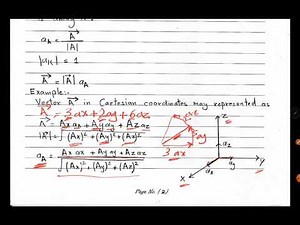 a_A = A⃗ / |A|
|a_A| = 1
A⃗ = |A⃗| a_A
Example:-
Vector A⃗ in Cartesian coordinates may represented as
A⃗ = 3 ax + 2 ay + 6 az
A⃗ = Ax ax + Ay ay + Az az
|A⃗| = √(Ax)² + (Ay)² + (Az)²
a_A = Ax ax + Ay ay + Az az / √(Ax)² + (Ay)² + (Az)²
3 ax
ay
z
az
ax
ay
x
y
Page No (2)